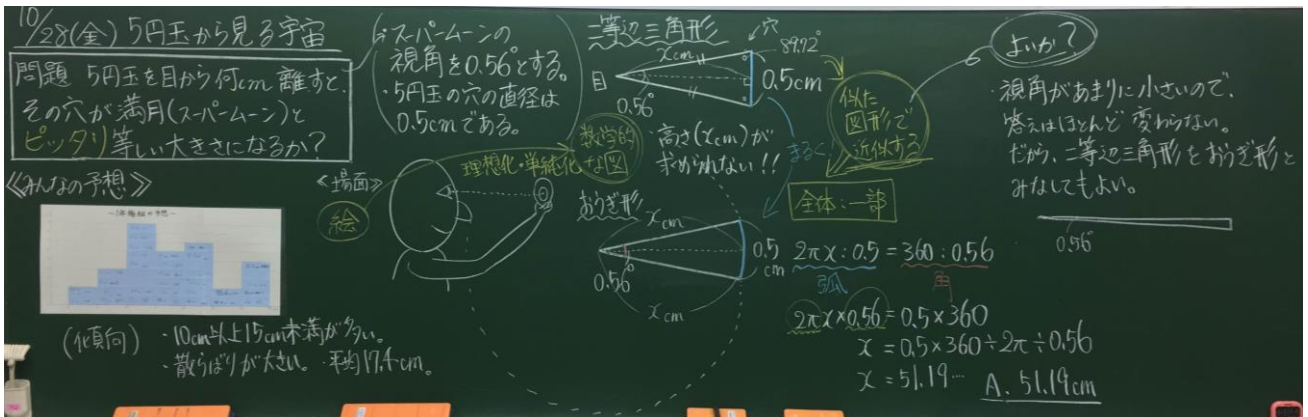 10/28(金) 5円玉から見る宇宙
問題 5円玉を目から何cm離すと、
その穴が満月(スーパームーン)と
ピッタリ等しい大きさになるか?
≪みんなの予想≫
(傾向) ・10cm以上15cm未満が多い。
・散らばりが大きい。・平均17.4cm。
・スーパームーンの
視角を0.56°とする。
・5円玉の穴の直径は
0.5cmである。
≪場面≫
絵
理想化・単純化
数学的な図
二等辺三角形
xcm
穴
89.72°
目
0.56°
0.5cm
・高さ(xcm)が
求められない!!
まるく
おうぎ形
xcm
0.56°
0.5
cm
xcm
似た
図形で
近似する
全体:一部
2πx:0.5=360:0.56
弧
角
2πx×0.56=0.5×360
x=0.5×360÷2π÷0.56
x=51.19…
A. 51.19cm
よいか?
・視角があまりに小さいので、
答えはほとんど変わらない。
だから、二等辺三角形をおうぎ形と
みなしてもよい。
0.56°